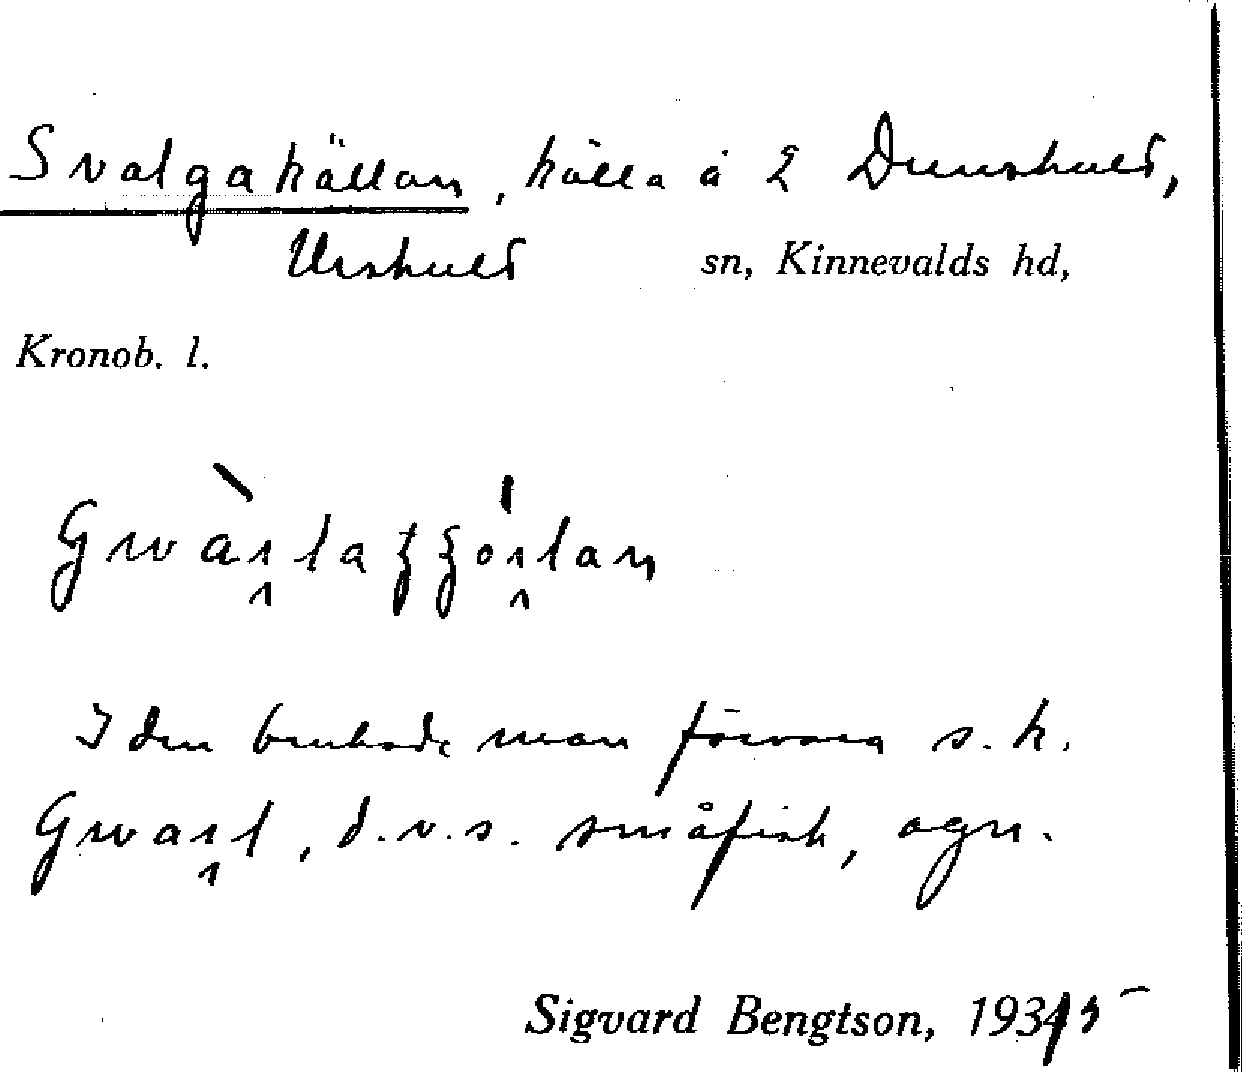 Svalgakällan, källa å 2 Dunshult,
Urshult sn, Kinnevalds hd,
Kronob. l.
I den brukade man förvara s.k.
d.v.s. småfisk, agn.
Sigvard Bengtson, 1935